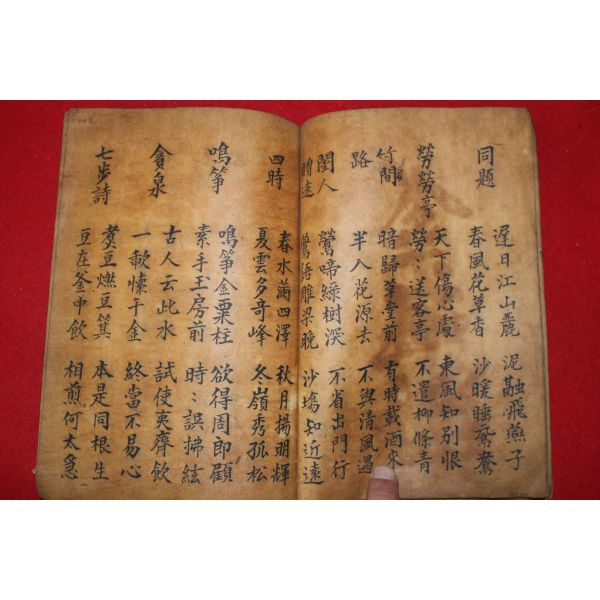 同題
遲日江山麗 泥融飛燕子
春風花草香 沙暖睡鴛鴦
勞勞亭
天下傷心處 東風知別恨
勞〻送客亭 不遣柳條青
竹間
暗歸草堂前 有時載酒來
路
半入花源去 不與清風過
閨人
鶯啼綠樹深 不省出門行
贈遠
鷰語雕梁晚 沙塲知近遠
四時
春水滿四澤 秋月揚明輝
夏雲多奇峰 冬嶺秀孤松
鳴箏
鳴箏金粟柱 欲得周郎顧
素手玉房前 時〻誤拂絃
貪泉
古人云此水 試使夷齊飮
一歃懷千金 終當不易心
七步詩
煮豆燃豆箕 本是同根生
豆在釜中飮 相煎何太急